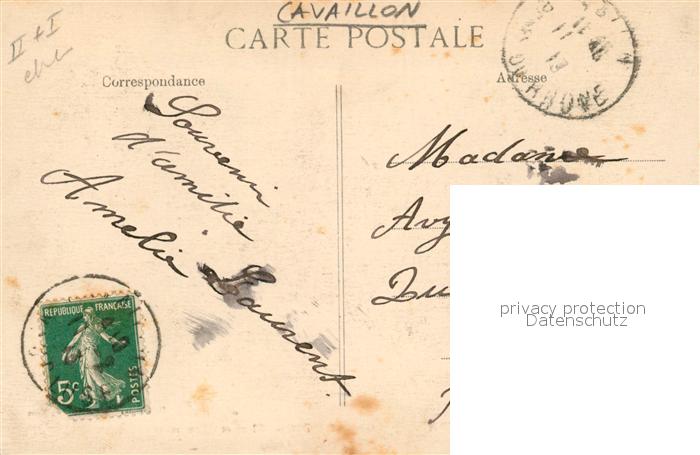 CAVAILLON
CARTE POSTALE
II + I
Correspondance
Adresse
Souvenir
d'amitié
Amelie Laurent.
Madame
RHONE
REPUBLIQUE FRANÇAISE
5c
POSTES
privacy protection
Datenschutz